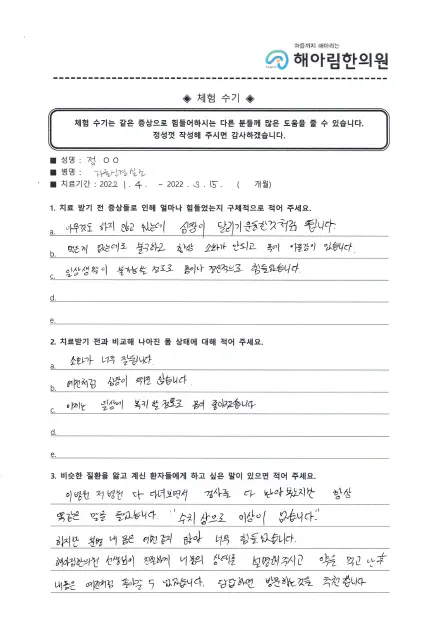 마음까지 헤아리는
해아림한의원
◈ 체험 수기 ◈
체험 수기는 같은 증상으로 힘들어하시는 다른 분들께 많은 도움을 줄 수 있습니다.
정성껏 작성해 주시면 감사하겠습니다.
■ 성명 : 정 ○○
■ 병명 : 자율신경실조
■ 치료기간 : 2022. 1. 4. - 2022. 3. 15. ( 개월)
1. 치료 받기 전 증상들로 인해 얼마나 힘들었는지 구체적으로 적어 주세요.
a. 아무것도 하지 않고 있는데 심장이 달리기 운동한것처럼 뜁니다.
b. 먹은게 없는데도 불구하고 항상 소화가 안되고 목이 이물감이 있습니다.
c. 일상생활이 불가능할 정도로 몸이나 정신적으로 힘들었습니다.
d.
e.
2. 치료받기 전과 비교해 나아진 몸 상태에 대해 적어 주세요.
a. 소화가 너무 잘됩니다
b. 예전처럼 심장이 뛰지 않습니다.
c. 이제는 일상에 복귀할 정도로 몸이 좋아졌습니다
d.
e.
3. 비슷한 질환을 앓고 계신 환자들에게 하고 싶은 말이 있으면 적어 주세요.
이병원 저병원 다 다녀보면서 검사를 다 받아봤지만 항상
똑같은 말을 들었습니다. "수치상으로 이상이 없습니다."
하지만 분명 내 몸은 어딘가 많이 너무 힘들었습니다.
해아림한의원 선생님이 친절하게 내 몸의 상태를 설명해주시고 약을 먹고 난 후
내몸은 예전처럼 돌아갈 수 있었습니다. 답답하면 방문하는것을 추천합니다